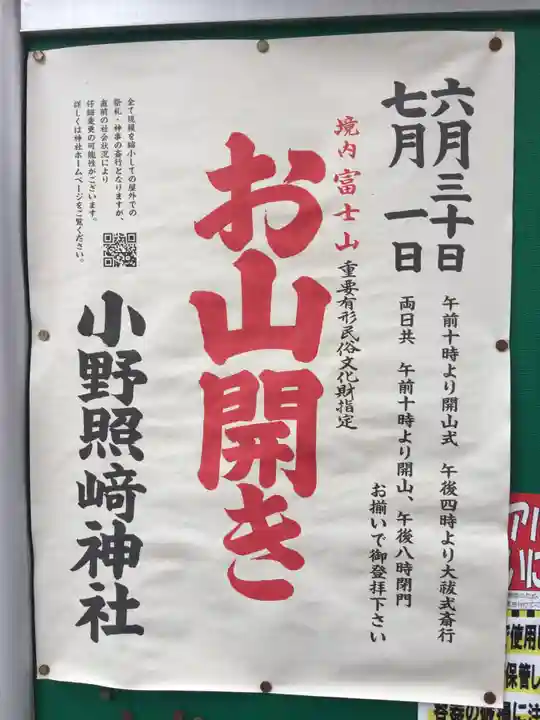 六月三十日 午前十時より開山式 午後四時より大祓式斎行
七月 一日 両日共 午前十時より開山、午後八時閉門
お揃いで御登拝下さい
境内富士山 重要有形民俗文化財指定
お山開き
全て規模を縮小しての屋外での
祭礼・神事の斎行となりますが、
直前の社会状況により
仔細変更の可能性がございます。
詳しくは神社ホームページをご覧ください。
小野照崎神社
使用
保管し